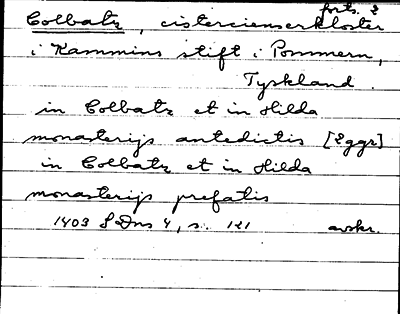 forts. 2
Colbatz, cistercienserkloster
i Kammins stift i Pommern,
Tyskland.
in Colbatz et in Hilda
monasterijs antedictis [2 ggr]
in Colbatz et in Hilda
monasterijs prefatis
1403 SDns 4, s. 121 avskr.